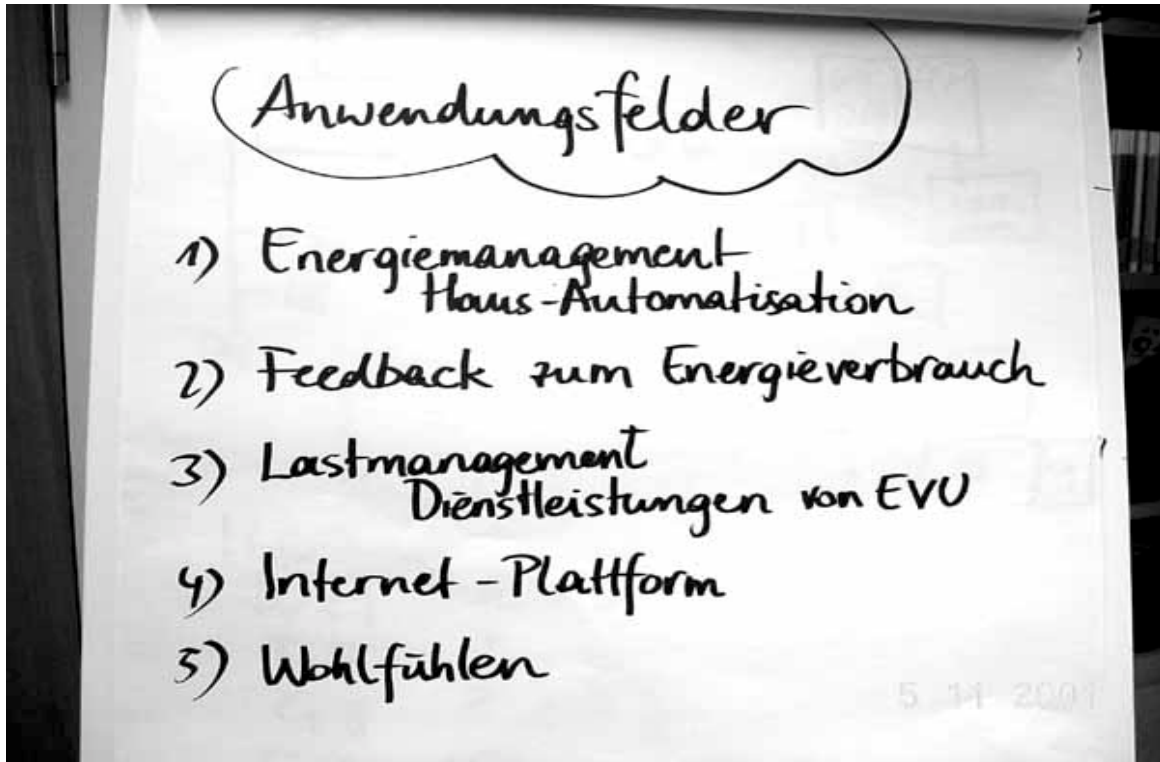 Anwendungsfelder
1) Energiemanagement
Haus-Automatisation
2) Feedback zum Energieverbrauch
3) Lastmanagement
Dienstleistungen von EVU
4) Internet-Plattform
5) Wohlfühlen
5 11 2001